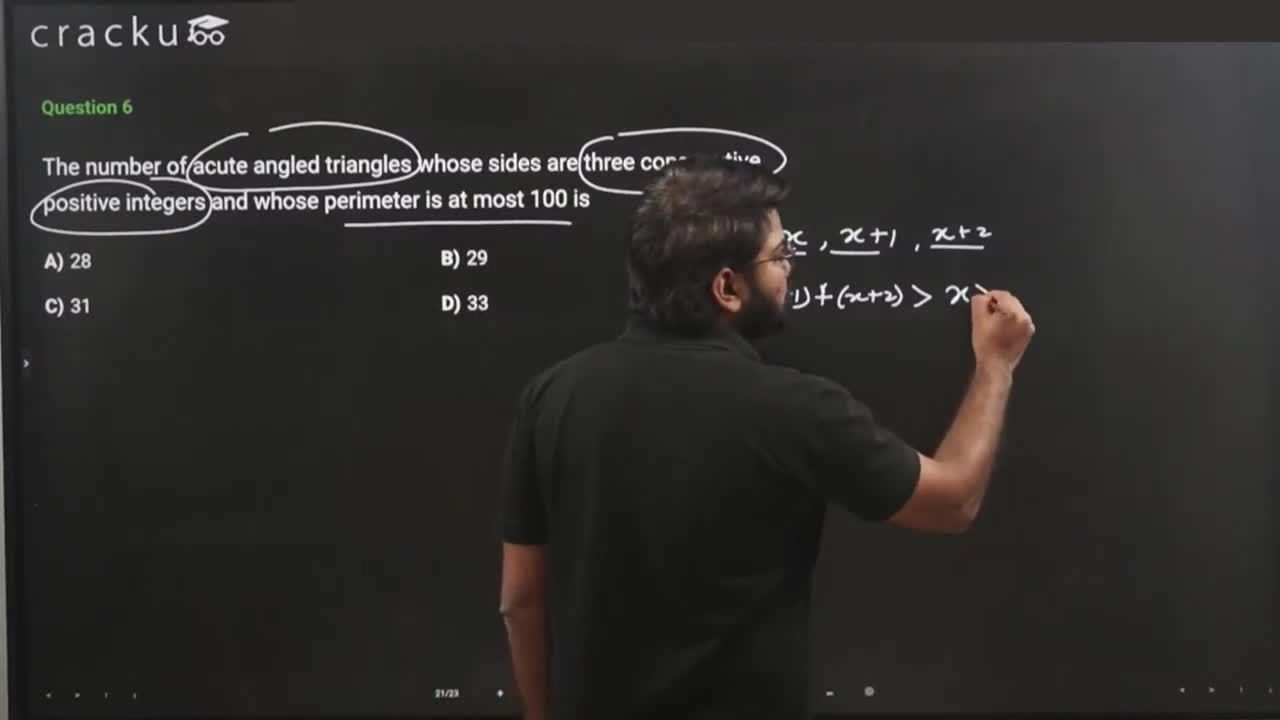 cracku
Question 6
The number of acute angled triangles whose sides are three
positive integers and whose perimeter is at most 100 is
A) 28
B) 29
C) 31
D) 33
x , x+1 , x+2
1) + (x+2) > x
21/23